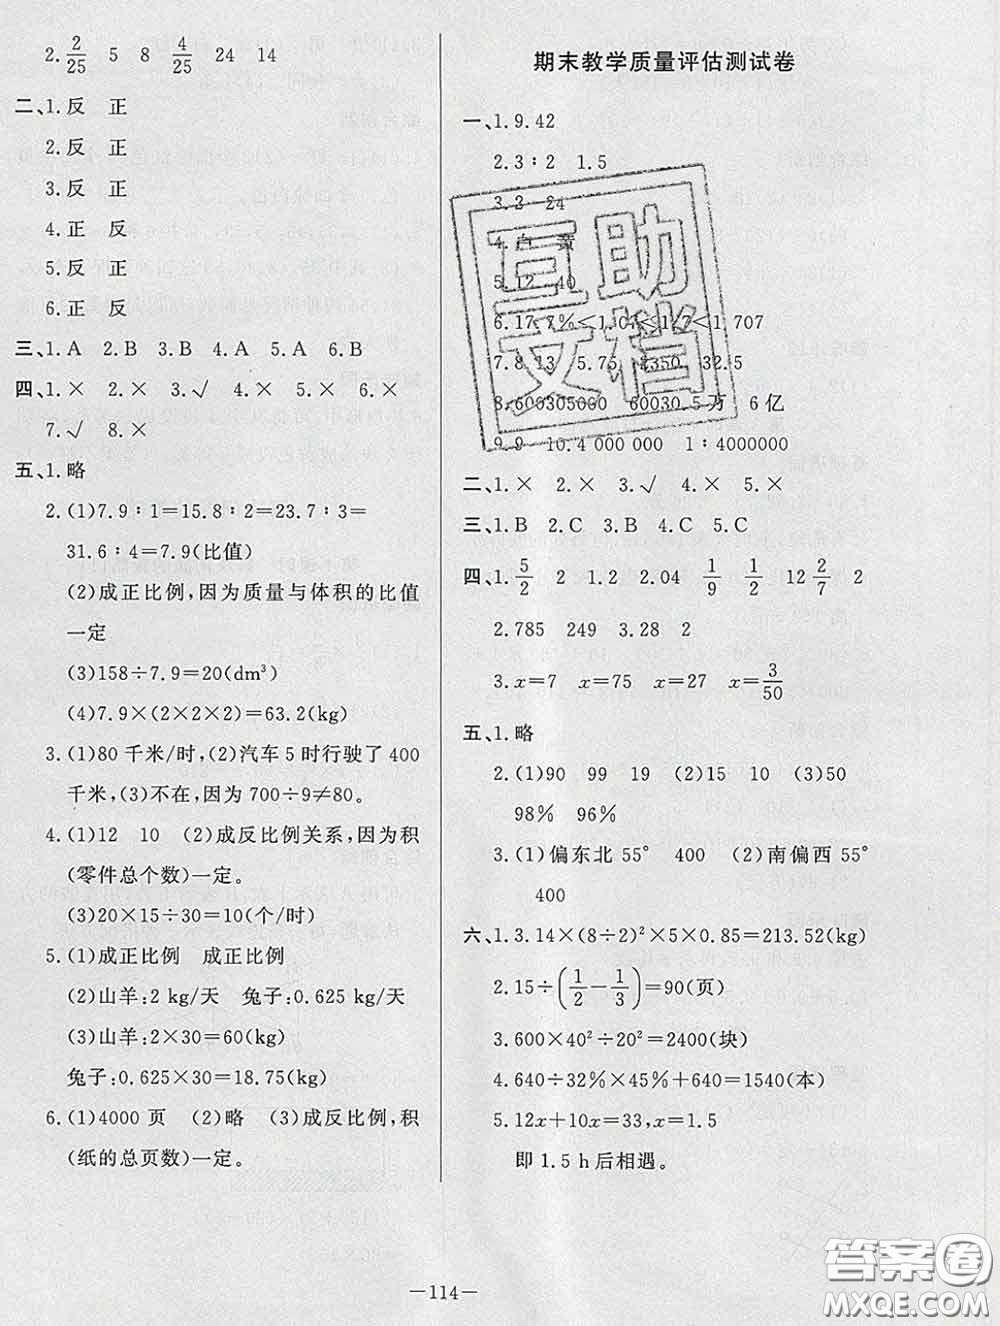 2. 2/25 5 8 4/25 24 14
二、1.反 正
2.反 正
3.反 正
4.正 反
5.反 正
6.正 反
三、1.A 2.B 3.B 4.A 5.A 6.B
四、1.× 2.× 3.√ 4.× 5.× 6.×
7.√ 8.×
五、1.略
2.(1)7.9∶1=15.8∶2=23.7∶3=
31.6∶4=7.9(比值)
(2)成正比例,因为质量与体积的比值
一定
(3)158÷7.9=20(dm³)
(4)7.9×(2×2×2)=63.2(kg)
3.(1)80 千米/时,(2)汽车 5 时行驶了 400
千米,(3)不在,因为 700÷9≠80。
4.(1)12 10 (2)成反比例关系,因为积
(零件总个数)一定。
(3)20×15÷30=10(个/时)
5.(1)成正比例 成正比例
(2)山羊:2 kg/天 兔子:0.625 kg/天
(3)山羊:2×30=60(kg)
兔子:0.625×30=18.75(kg)
6.(1)4000 页 (2)略 (3)成反比例,积
(纸的总页数)一定。
期末教学质量评估测试卷
一、1.9.42
2.3∶2 1.5
3.3 24
4.白 黄
5.12 40
6.17.7%<1.07<1.7<1.707
7.8.13 5.75 2350 32.5
8.600305000 60030.5万 6亿
9.9 10.4 000 000 1∶4000000
二、1.× 2.× 3.√ 4.× 5.×
三、1.B 2.C 3.B 4.C 5.C
四、1. 5/2 2 1.2 2.04 1/9 1/2 12 2/7 2
2.785 249 3.28 2
3.x=7 x=75 x=27 x=3/50
五、1.略
2.(1)90 99 19 (2)15 10 (3)50
98% 96%
3.(1)偏东北 55° 400 (2)南偏西 55°
400
六、1.3.14×(8÷2)²×5×0.85=213.52(kg)
2.15÷(1/2-1/3)=90(页)
3.600×40²÷20²=2400(块)
4.640÷32%×45%+640=1540(本)
5.12x+10x=33,x=1.5
即 1.5 h 后相遇。
互助
文档
—114—
答案圈
MXQE.COM